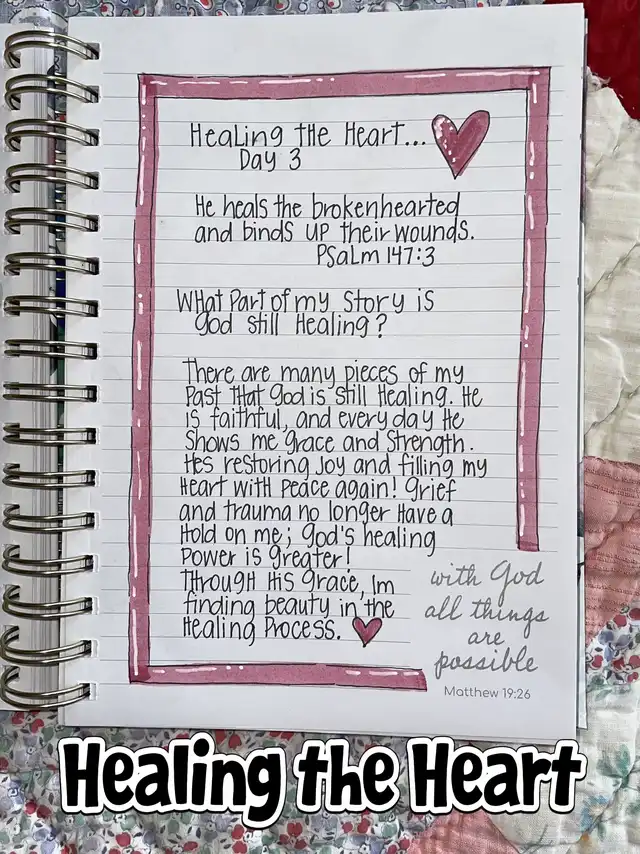 Healing the Heart...
Day 3
He heals the brokenhearted
and binds up their wounds.
Psalm 147:3
What part of my story is
God still Healing?
There are many pieces of my
past that God is still Healing. He
is faithful, and every day He
shows me grace and strength.
He's restoring joy and filling my
Heart with peace again! Grief
and trauma no longer have a
Hold on me; God's healing
power is greater!
Through His grace, Im
finding beauty in the
Healing Process.
with God
all things
are
possible
Matthew 19:26
Healing the Heart